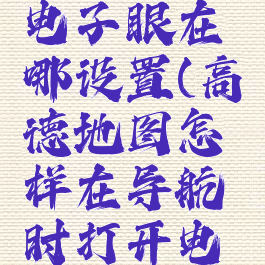 电子眼在
哪设置(高
德地图怎
样在导航
时打开电